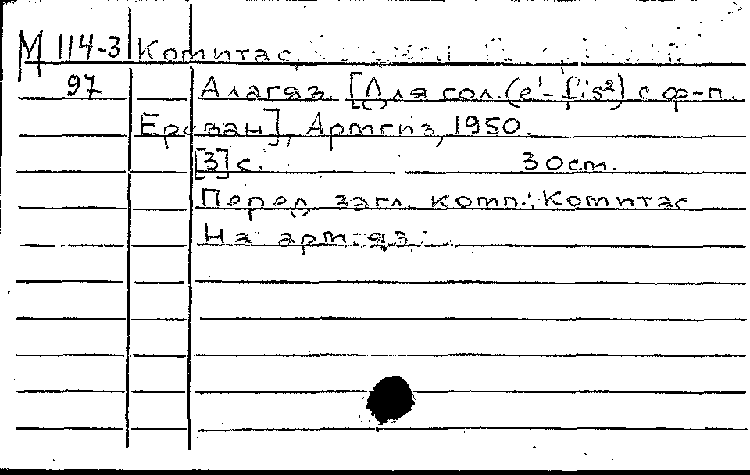 М 114-3 Комитас,
97 Алагяз. [Для гол. (e¹-fis²) с ф-п.
Ереван], Армгиз, 1950.
[3] с. 30 см.
Перед загл. комп.: Комитас
На арм. яз.